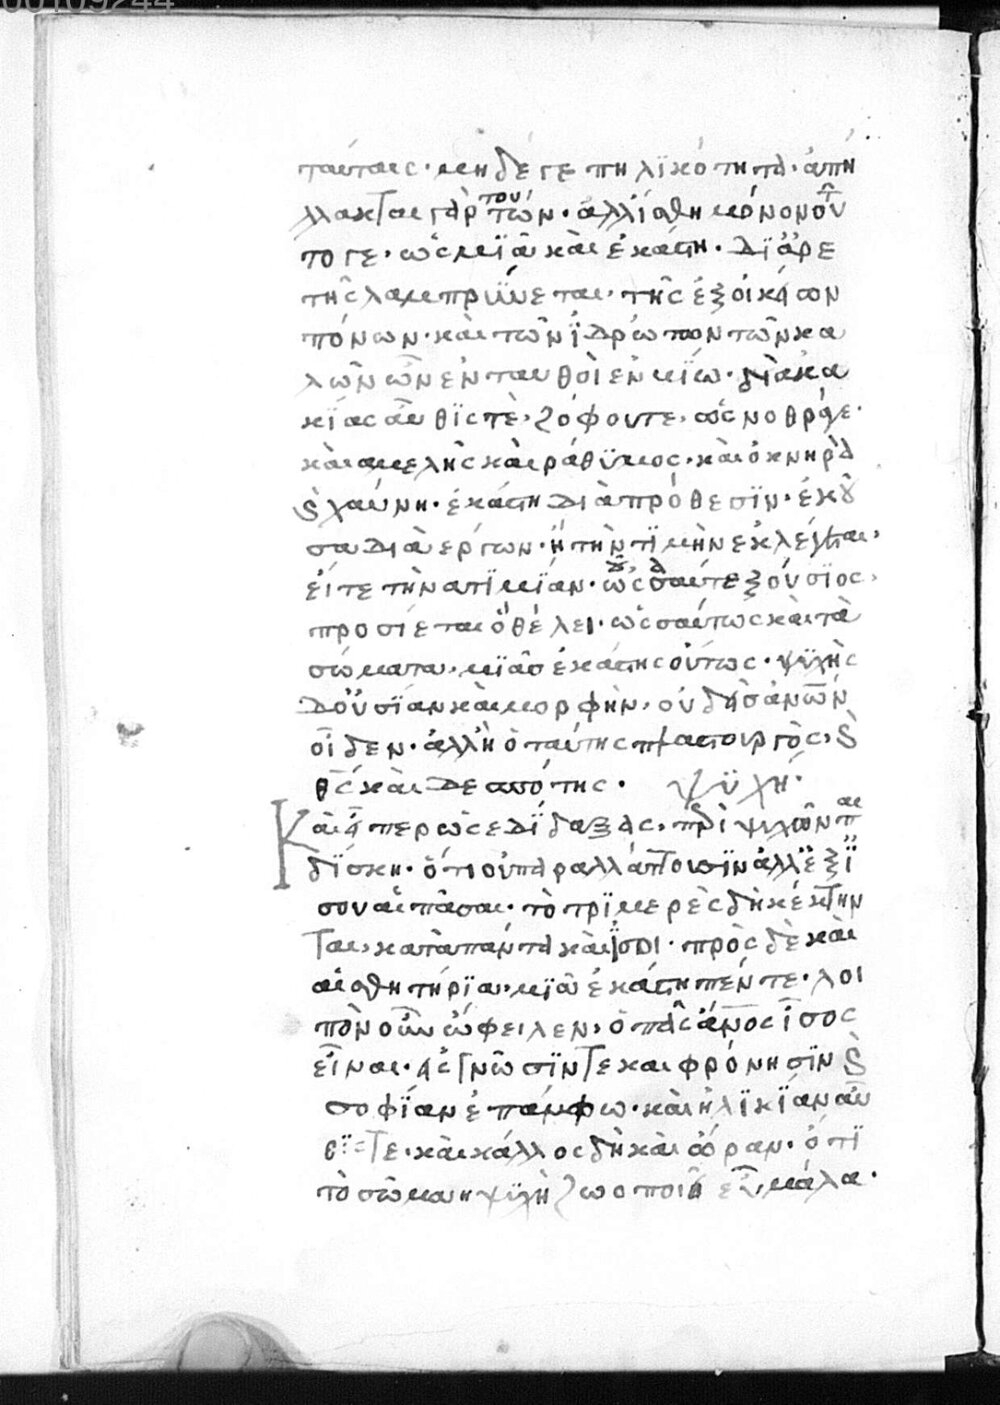 00109244
ταύταις· μηδέ γε πηλϊκότητα· ἀπή
λλακται γὰρ τούτων· ἀλλϊὰθη μόνον οὖν
τό γε· ὡς μϊᾶ καὶ ἑκάστη· δϊ ἀρε
τῆς λαμπρΰνεται· τῆς ἐξ οἰκείων
πόνων· καὶ τῶν ϊδρώτων τῶν κα
λῶν ὧν ἐνταυθοῖ ἐν βϊω· διὰ κα
κίας αὖθϊς τὲ, ζόφου τε, ὡς νοθρά γε·
καὶ ἀμελὴς καὶ ράθϋμος, καὶ ὀκνηρὰ
καὶ χαύνη· ἑκάστη διὰ πρόθεσϊν· ἑκοῦ
σα διὰ ἔργων· ἢ τὴν τϊμὴν ἐκλέγεται,
εἴτε τὴν ατϊμϊαν· ὡς δ' αὐτεξούσϊος,
προσίεται ὃ θέλει· ὡσαύτως καὶ τὰ
σώματα, μϊᾶς ἑκάστης οὕτως· ψϋχῆς
δ οὐσϊαν καὶ μορφὴν, οὐδεὶς ἀνων
οἶδεν· ἀλλ' ἢ ὁ ταύτης πλαστουργὸς, καὶ
θς καὶ δεσπότης· ψϋχή·
Καὶ εἴπερ ὡς ἐδϊδαξας, περὶ ψυχῶν παι
δϊσκη· ὅτι οὐ παραλλάττουσϊν ἀλλ' ἐξϊ
σου αἱ πᾶσαι· τὸ τρϊμερὲς δὴ κέκτην
ται, κατὰ πάντα καὶ ϊσοι· πρὸς δὲ καὶ
αἰσθητήρϊα, μϊᾶ ἑκάστη πέντε· λοι
πὸν οὖν ὤφειλεν, ὁ πᾶς ἄνος ἶσος
εἶναι· εἰς γνῶσϊν τε καὶ φρόνησϊν καὶ
σοφϊαν ἐπάμφω· καὶ ἡλϊκϊαν αὖ
θϊς τε· καὶ κάλλος δὴ καὶ ὥραν· ὅτϊ
τὸ σῶμα ἡ ψϋχὴ ζωοποιεῖ εὖ μάλα·